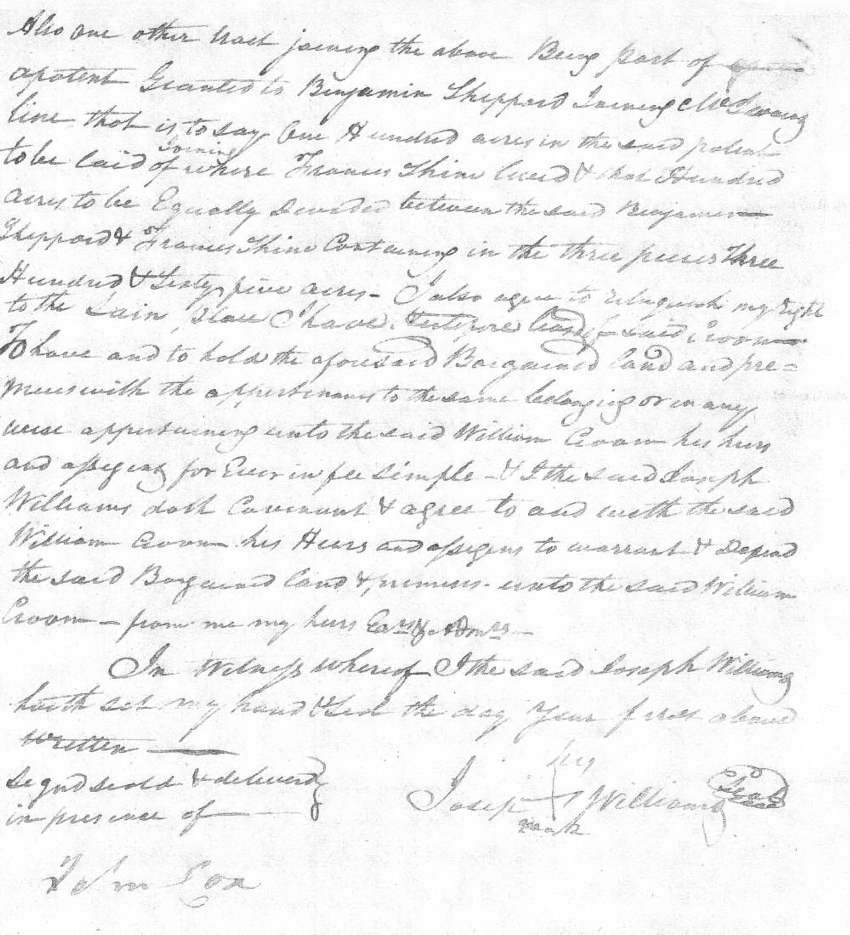 Also one other tract joining the above Being Part of
a patent Granted to Benjamin Sheppard Joining
line that is to say One Hundred acres in the said patent
Joining
to be laid of where Francis Shine lived & that Hundred
acres to be Equally devided between the said Benjamin
Sheppard & Francis Shine Containing in the three pieces Three
Hundred & Sixty five acres - I also agree to relinquish my Right
to the place I have said Croom
To have and to hold the aforesaid Bargained land and pre=
mices with the appertinances to the same belonging or in any
wise appertaining unto the said William Croom his heirs
and assigns for Ever in fee simple - & I the said Joseph
Williams doth Covenant & agree to and with the said
William Croom his Heirs and assigens to warrant & Defend
the said Bargained land & premises unto the said William
Croom - from me my heirs
In Witness whereof I the said Joseph Williams
hath set my hand & Seal the day Year first above
written
Signd seald & deliverd
in presence of
his
Joseph + Williams Seal
mark
John Cox